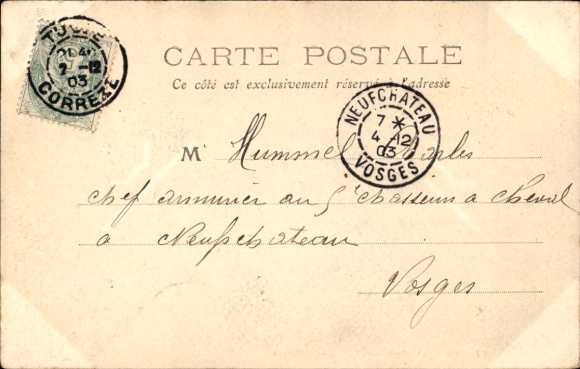 TULLE
2-12
03
CORRÈZE
CARTE POSTALE
Ce côté est exclusivement réservé à l'adresse
NEUFCHATEAU
7 *
4 -12
03
VOSGES
M Hummel Charles
chef armurier au 5e chasseurs a cheval
a Neufchateau
Vosges